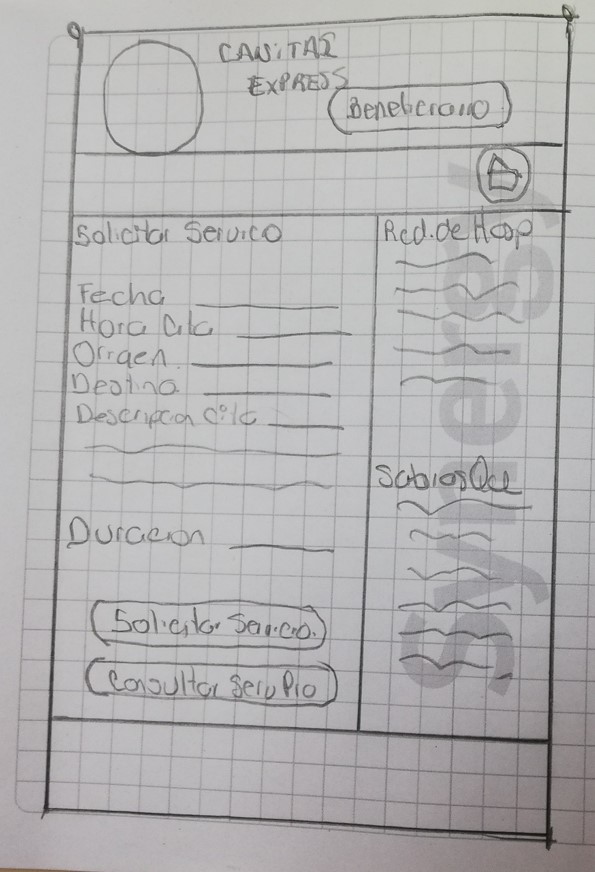 CANITAS
EXPRESS
Beneficiario
Solicitar Servicio
Fecha
Hora Cita
Origen
Destino
Descripcion Cita
Duracion
Solicitar Servicio.
Consultar Serv Pio
Red.de Hosp
Sabias Que
Synergy